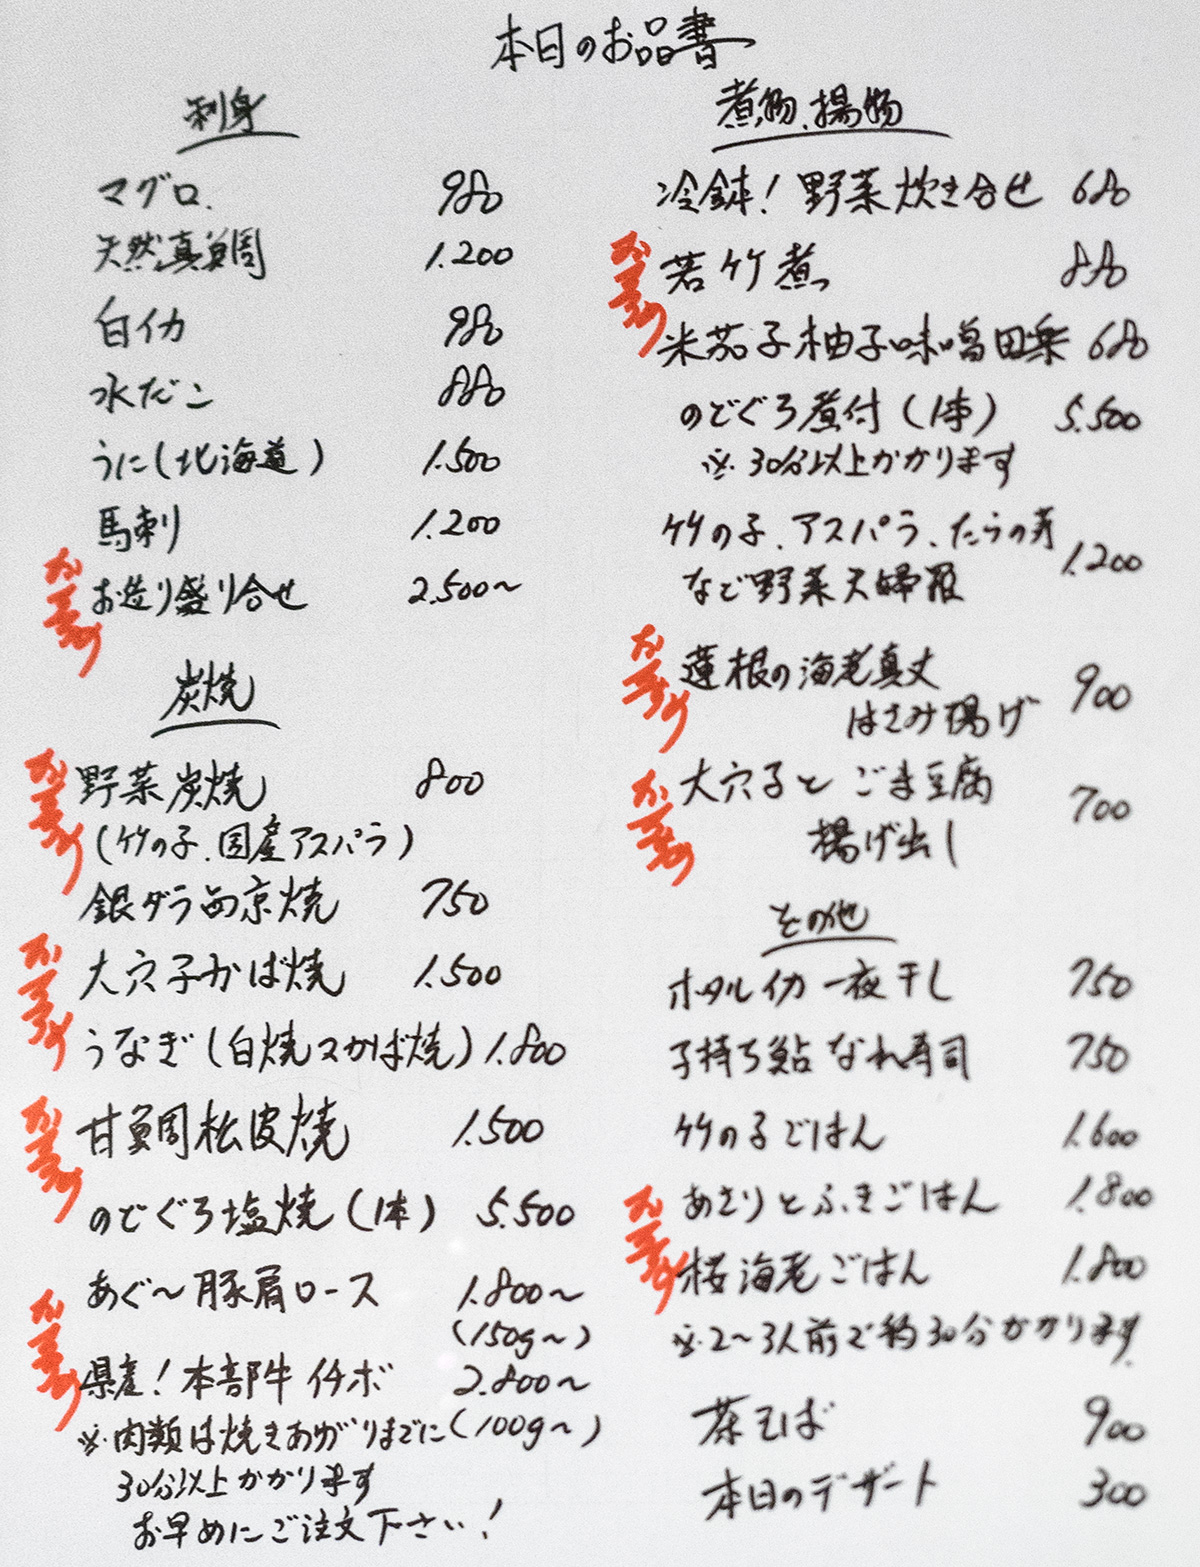 本日のお品書
刺身
マグロ. 980
天然真鯛 1.200
白イカ 980
水だこ 880
うに(北海道) 1.500
馬刺し 1.200
おすすめ お造り盛り合せ 2.500〜
炭焼
おすすめ 野菜炭焼 800
(竹の子、国産アスパラ)
銀ダラ西京焼 750
おすすめ 大穴子かば焼 1.500
うなぎ(白焼 又 かば焼) 1.800
おすすめ 甘鯛松皮焼 1.500
のどぐろ塩焼(1本) 5.500
あぐ〜豚肩ロース 1.800〜
(150g〜)
おすすめ 県産!本部牛イチボ 2.800〜
※肉類は焼きあがりまでに (100g〜)
30分以上かかります
お早めにご注文下さい!
煮物、揚物
冷鉢!野菜炊き合せ 680
おすすめ 若竹煮 880
米茄子柚子味噌田楽 680
のどぐろ煮付(1本) 5.500
※30分以上かかります
竹の子、アスパラ、たらの芽
など野菜天婦羅 1.200
おすすめ 蓮根の海老真丈
はさみ揚げ 900
おすすめ 大穴子とごま豆腐
揚げ出し 700
その他
ホタルイカ一夜干し 750
子持ち鮎なれ寿司 750
竹の子ごはん 1.600
あさりとふきごはん 1.800
おすすめ 桜海老ごはん 1.800
※2〜3人前で約30分かかります
茶そば 900
本日のデザート 300